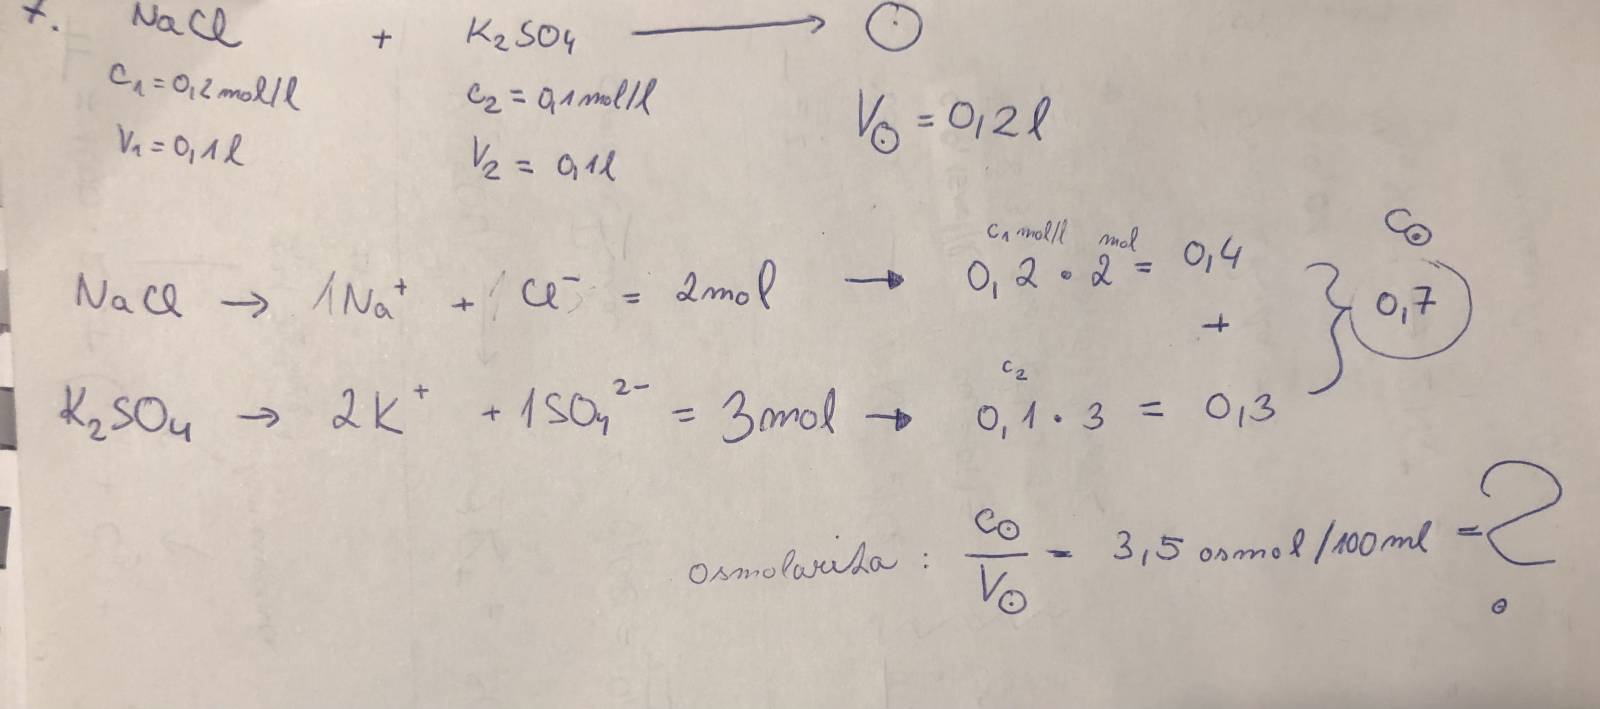 7. NaCl + K₂SO₄ ⟶ ⊙
c₁ = 0,2 mol/l c₂ = 0,1 mol/l V⊙ = 0,2 l
V₁ = 0,1 l V₂ = 0,1 l
c₁ mol/l mol c⊙
NaCl → 1Na⁺ + 1Cl⁻ = 2 mol → 0,2 · 2 = 0,4
+ } 0,7
c₂
K₂SO₄ → 2K⁺ + 1SO₄²⁻ = 3 mol → 0,1 · 3 = 0,3
osmolarita : c⊙ / V⊙ = 3,5 osmol/100ml = ?